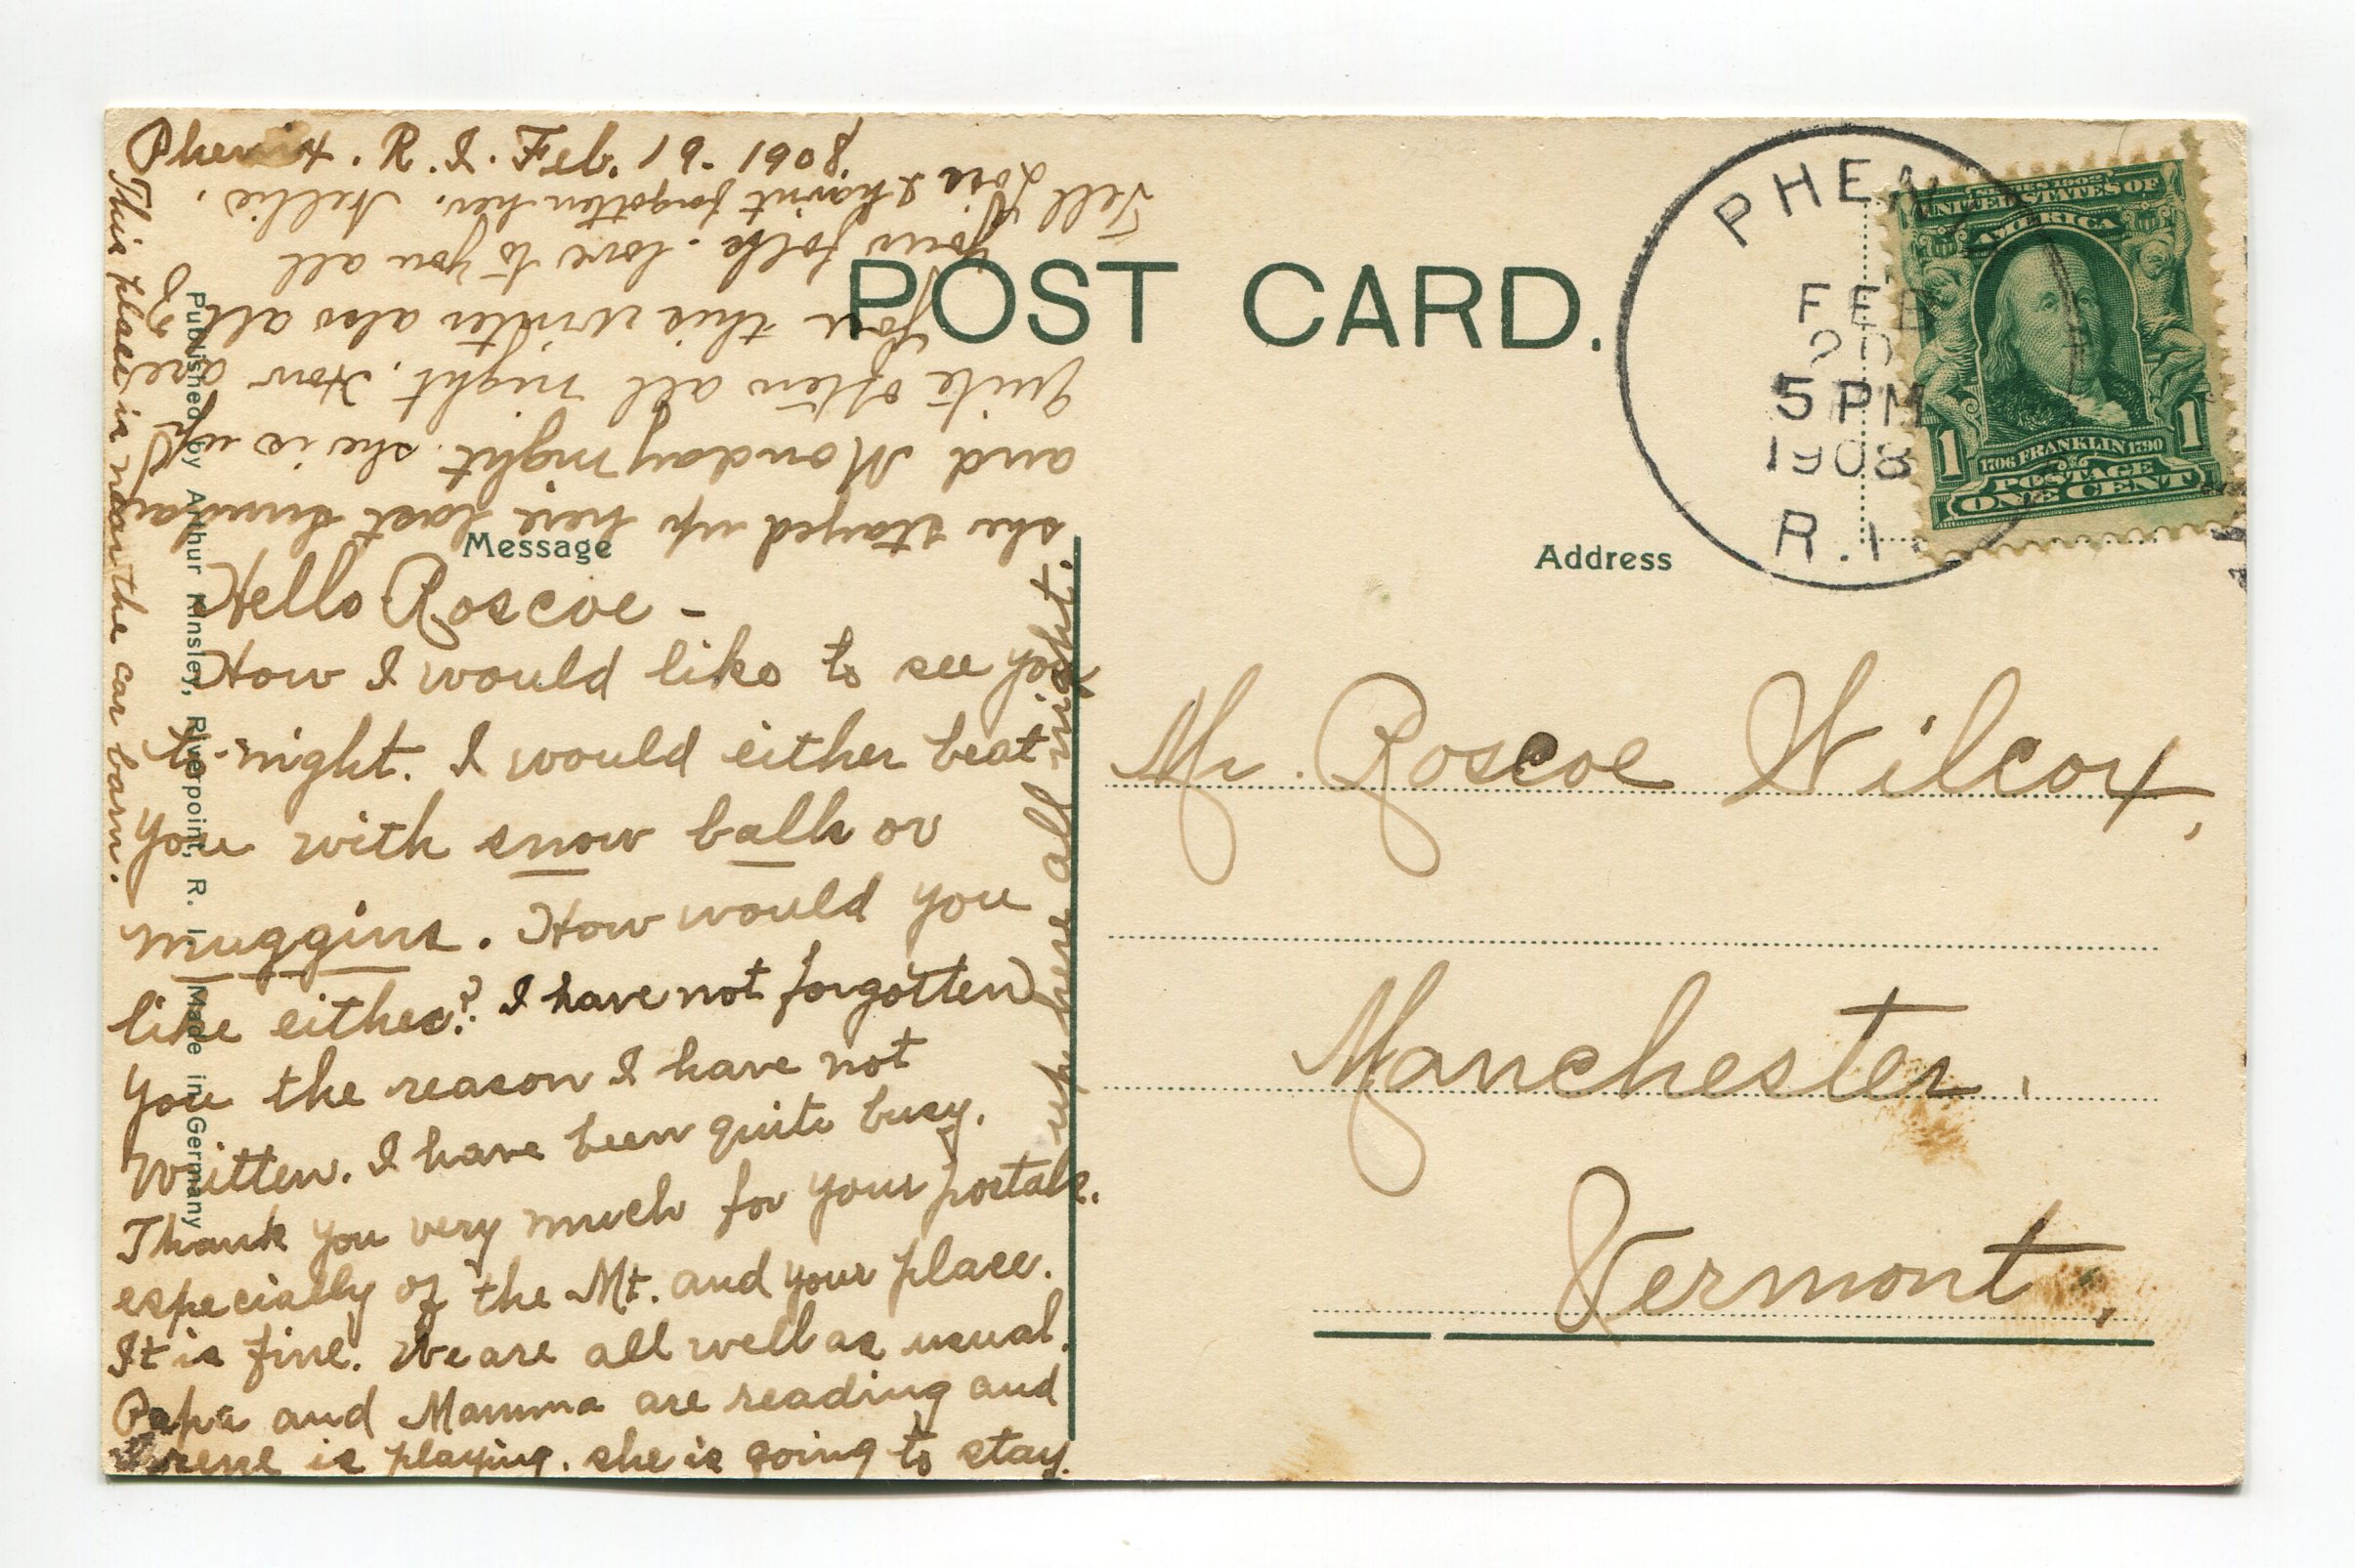 Phenix. R. I. Feb. 19. 1908
Hello Roscoe -
How I would like to see you
to-night. I would either beat
you with snow balls or
muggins. How would you
like either? I have not forgotten
you the reason I have not
written. I have been quite busy.
Thank you very much for your postals.
especially of the Mt. and your place.
It is fine. We are all well as usual.
Papa and Mamma are reading and
Irene is playing. she is going to stay
up here all night.
she stayed up here last Sunday
and Monday night. she is up
quite often all night. How are
you this winter also all
your folks. love to you all
Tell I havint forgotten her. Nellie.
This place is near the car barn.
Published by Arthur Kinsley, Riverpoint, R. I. Made in Germany
POST CARD.
Message
Address
PHENIX
FEB
20
5 PM
1908
R.I.
SERIES 1902
UNITED STATES OF
AMERICA
1706 FRANKLIN 1790
1 1
POSTAGE
ONE CENT
Mr. Roscoe Wilcox,
Manchester,
Vermont.